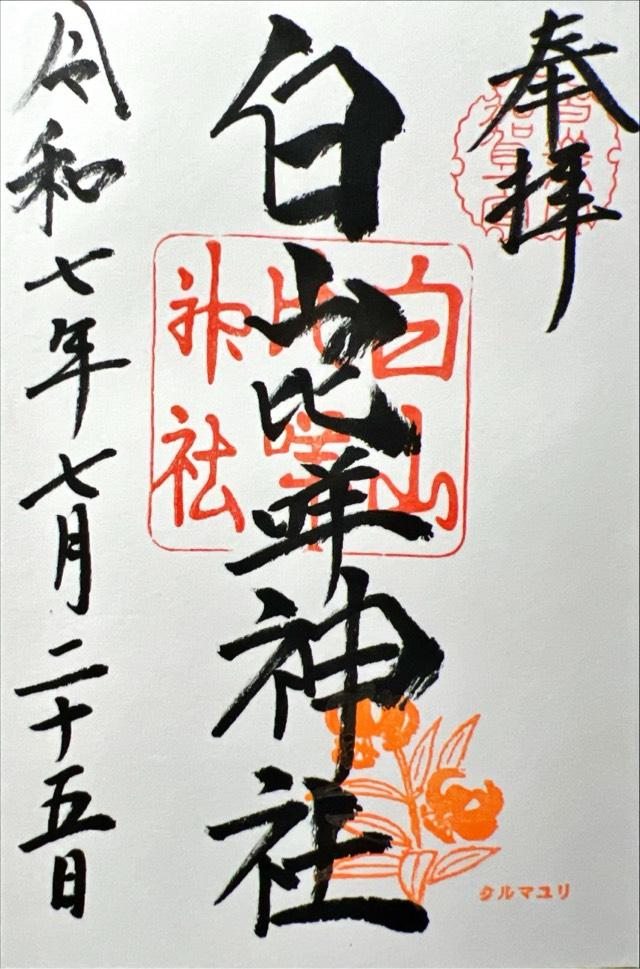 奉拝
白山比咩神社
白山
比咩
神社
クルマユリ
令和七年七月二十五日